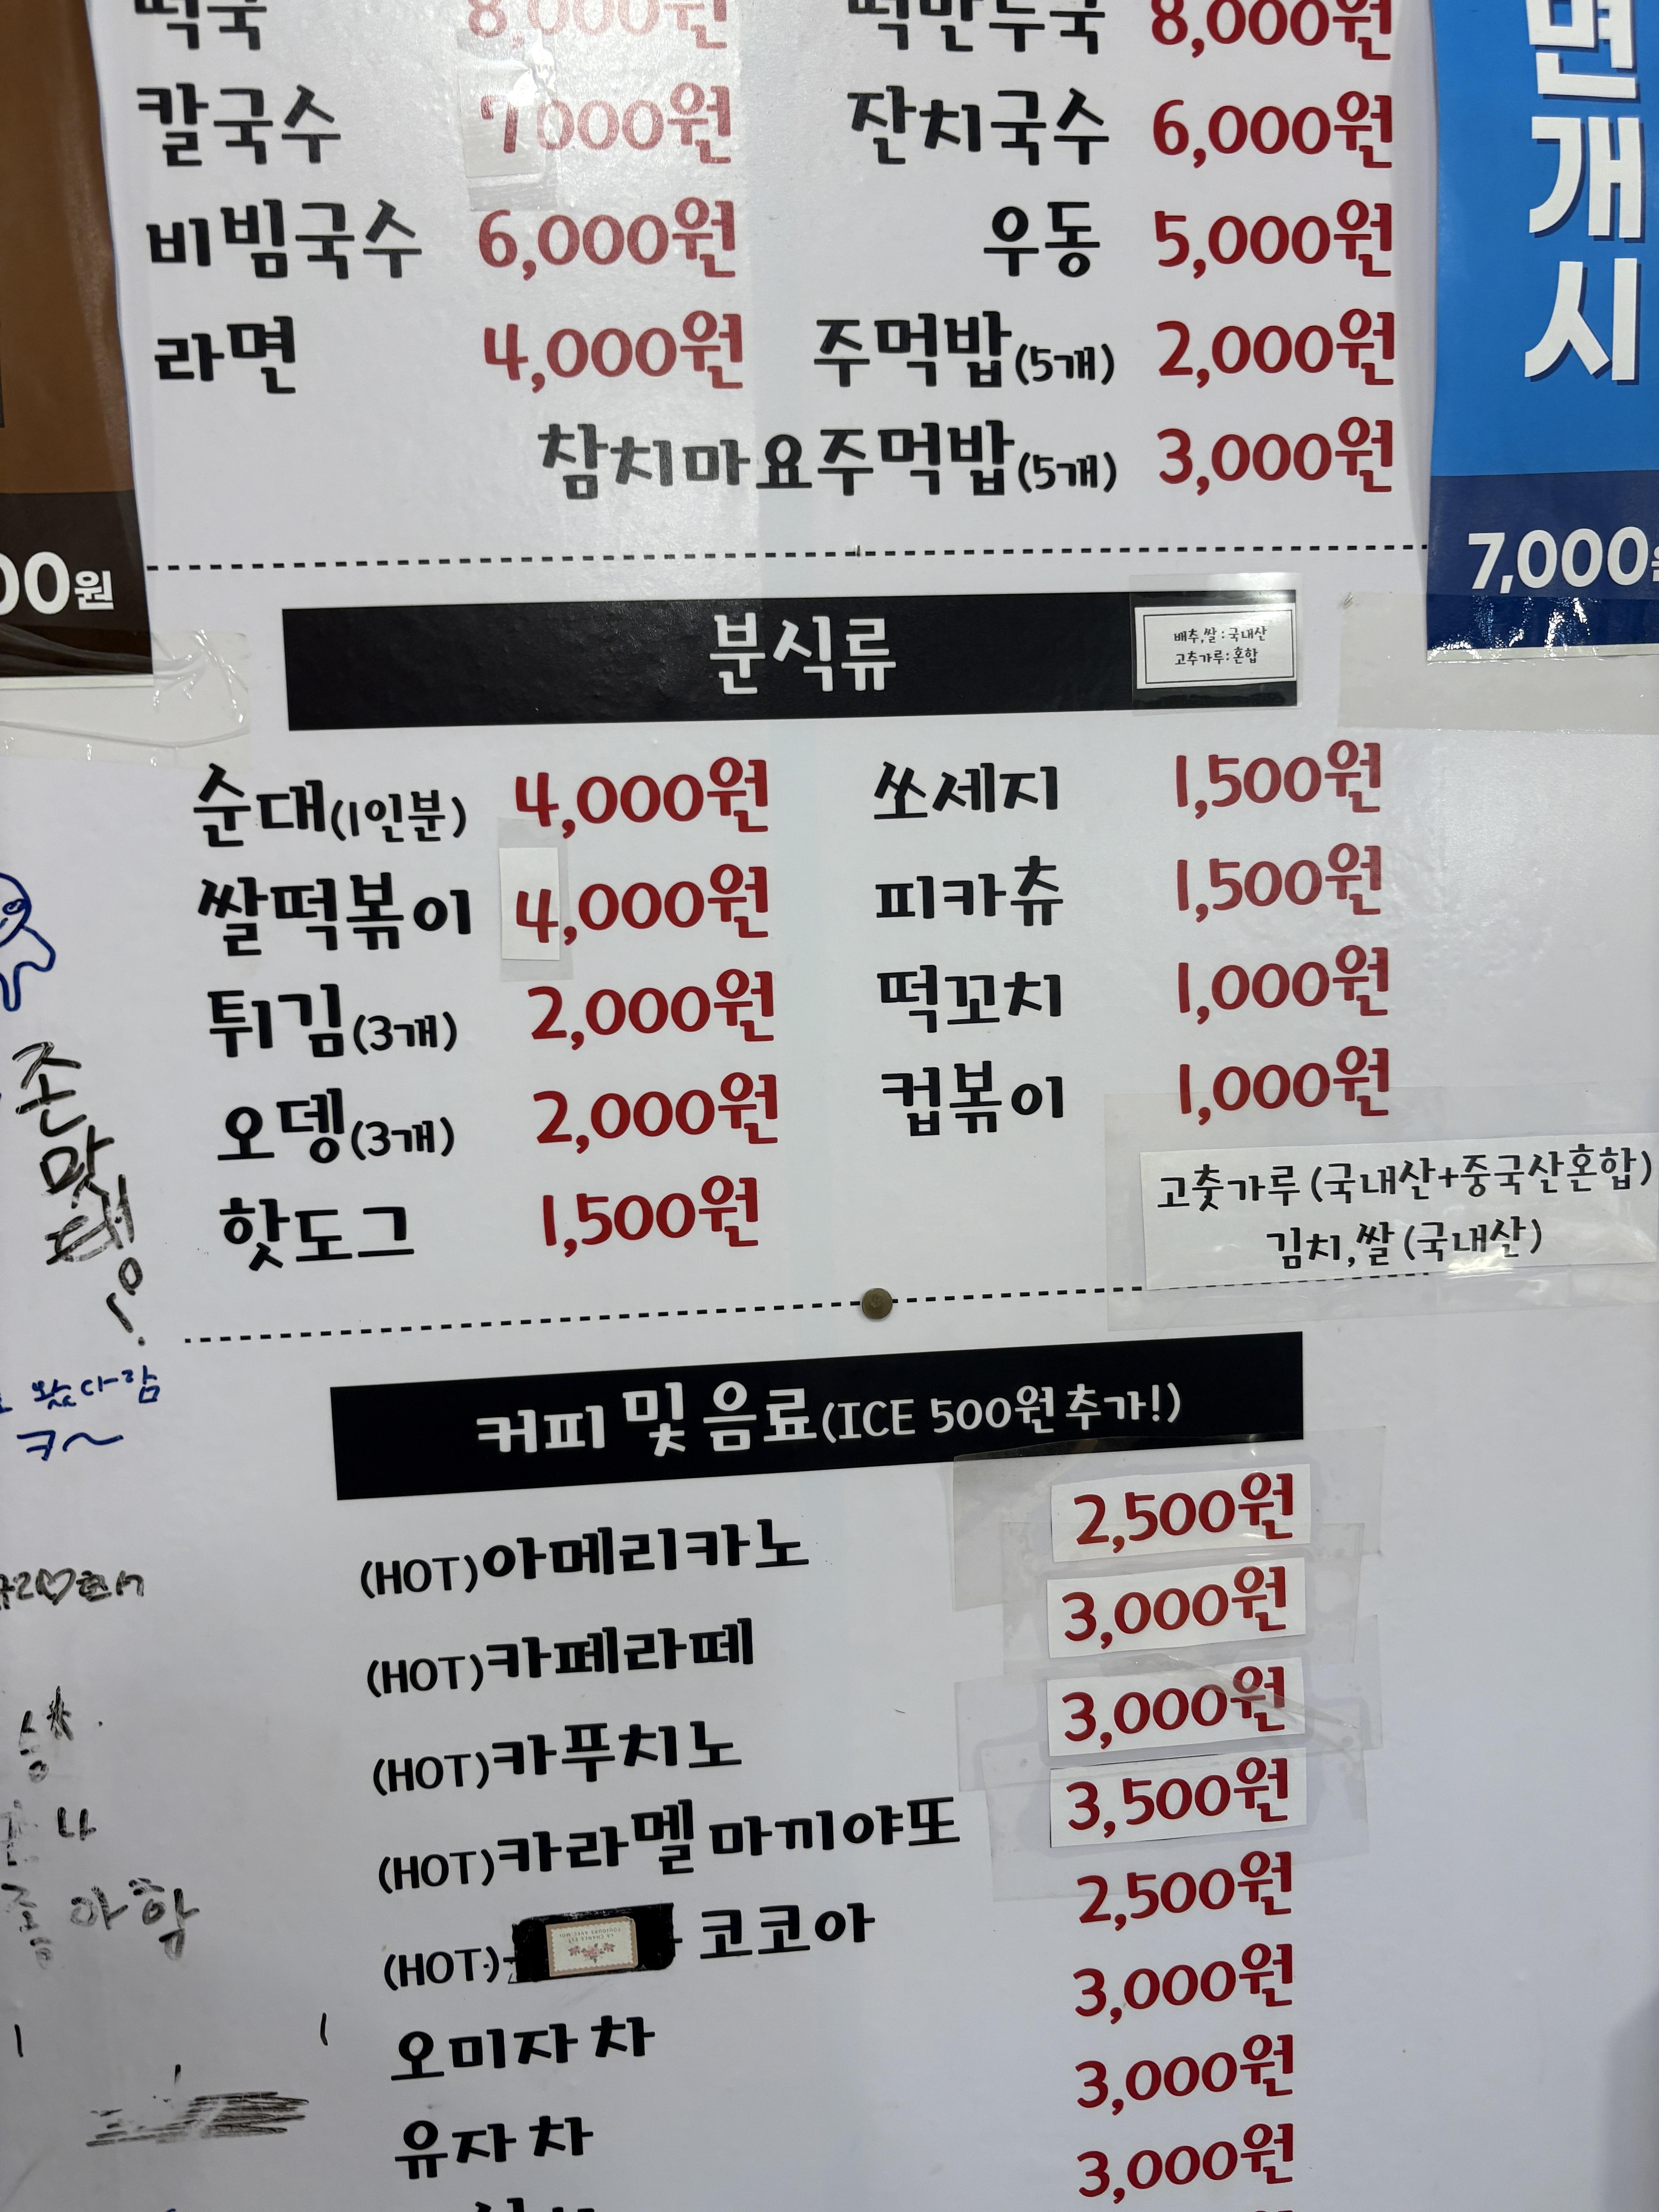 떡국 8,000원 떡만두국 8,000원
칼국수 7000원 잔치국수 6,000원
비빔국수 6,000원 우동 5,000원
라면 4,000원 주먹밥(5개) 2,000원
참치마요주먹밥(5개) 3,000원
면개시
7,000원
00원
분식류
배추,쌀:국내산
고추가루:혼합
순대(1인분) 4,000원 쏘세지 1,500원
쌀떡볶이 4,000원 피카츄 1,500원
튀김(3개) 2,000원 떡꼬치 1,000원
오뎅(3개) 2,000원 컵볶이 1,000원
핫도그 1,500원
고춧가루(국내산+중국산혼합)
김치,쌀(국내산)
존맛탱!
왔다감
ㅋ~
커피 및 음료(ICE 500원추가!)
(HOT)아메리카노 2,500원
(HOT)카페라떼 3,000원
(HOT)카푸치노 3,000원
(HOT)카라멜 마끼야또 3,500원
(HOT) 코코아 2,500원
오미자차 3,000원
유자차 3,000원
3,000원